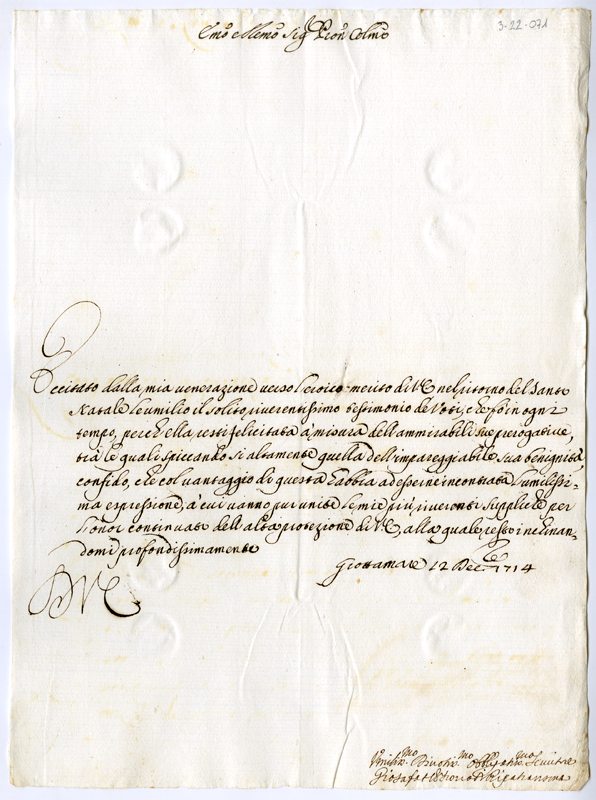 Emo e Rmo Sigr Pron Colmo
3-22-071
Eccitato dalla mia venerazione verso l'eroico merito di V.E. nel ritorno del Santo
Natale l'umilio il solito riverentissimo testimonio de Voti, che fò in ogni
tempo, perch'ella resti felicitata à misura dell'ammirabili sue prerogative,
trà le quali spiccando sì altamente quella dell'impareggiabile sua benignità,
confido, che col vantaggio di questa habbia ad essere incontrata l'umilissi-
ma espressione, à cui vanno pur unite le mie più riverenti suppliche per
l'onor continuato dell'alta protezione di V.E., alla quale resto inchinan-
domi profondissimamente
Grottamare 12 Decre 1714
D V E
Umilmo Divotmo Obbligatmo Servitre
Giosafat Vescovo di Ripatransona